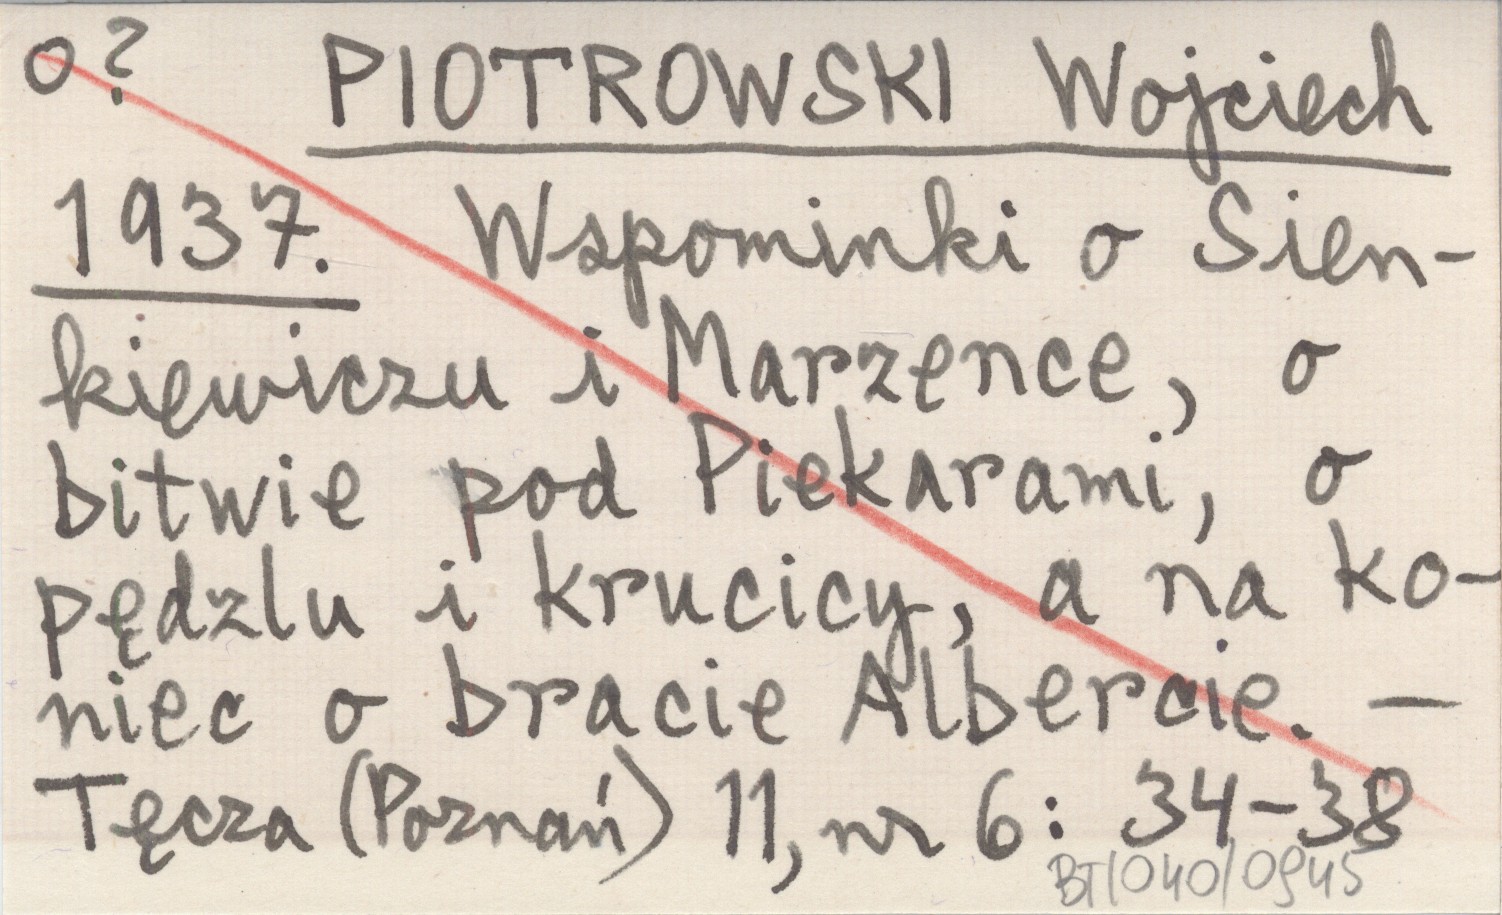 o? PIOTROWSKI Wojciech
1937. Wspominki o Sien-
kiewiczu i Marzence, o
bitwie pod Piekarami, o
pędzlu i krucicy, a na ko-
niec o bracie Albercie. —
Tęcza (Poznań) 11, nr 6: 34-38
BT/040/0945